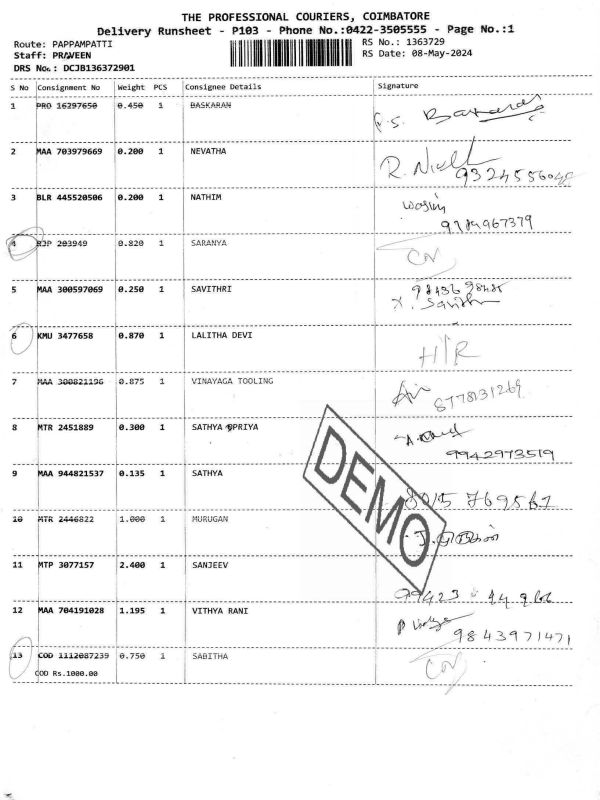 THE PROFESSIONAL COURIERS, COIMBATORE
Delivery Runsheet - P103 - Phone No.:0422-3505555 - Page No.:1
Route: PAPPAMPATTI RS No.: 1363729
Staff: PRAVEEN RS Date: 08-May-2024
DRS No.: DCJB136372901
S No Consignment No Weight PCS Consignee Details Signature
1 PRO 16297650 0.450 1 BASKARAN
2 MAA 703979669 0.200 1 NEVATHA
3 BLR 445520506 0.200 1 NATHIM
9789967379
4 BJP 203949 0.820 1 SARANYA
5 MAA 300597069 0.250 1 SAVITHRI
6 KMU 3477658 0.870 1 LALITHA DEVI H/R
7 MAA 300821196 0.875 1 VINAYAGA TOOLING
8778131269
8 MTR 2451889 0.300 1 SATHYA PRIYA
9942973519
9 MAA 944821537 0.135 1 SATHYA
10 MTR 2446822 1.000 1 MURUGAN
DEMO
11 MTP 3077157 2.400 1 SANJEEV
12 MAA 704191028 1.195 1 VITHYA RANI
9843971471
13 COD 1112087239 0.750 1 SABITHA
COD Rs.1000.00